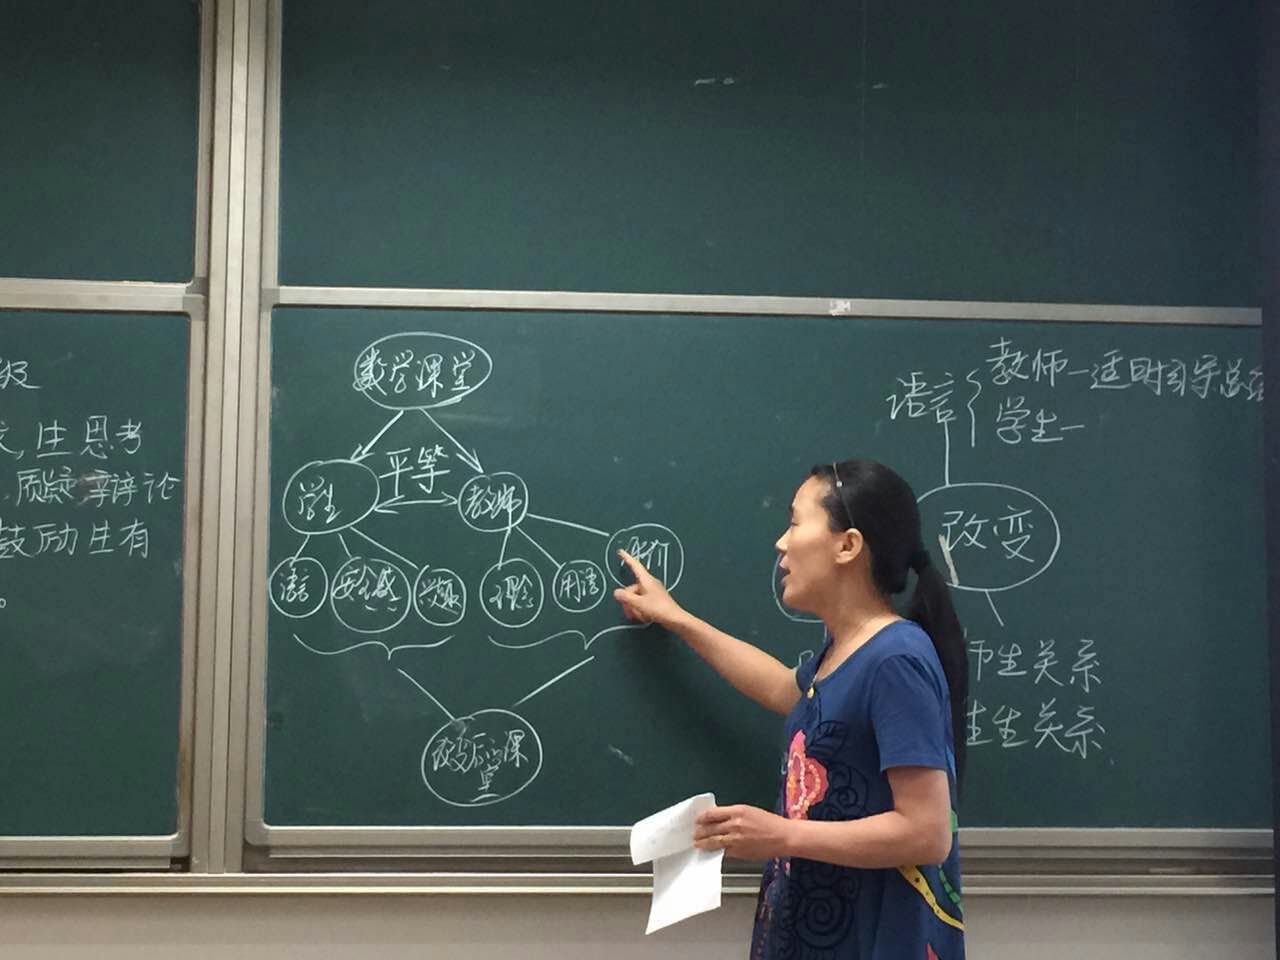 级
,生思考
质疑 辩论
鼓励生有
。
数学课堂
学生
平等
教师
语言
安全感
兴趣
理念
用语
评价
改变后的课
堂
语言{
教师—适时引导总结
学生—
改变
师生关系
生生关系